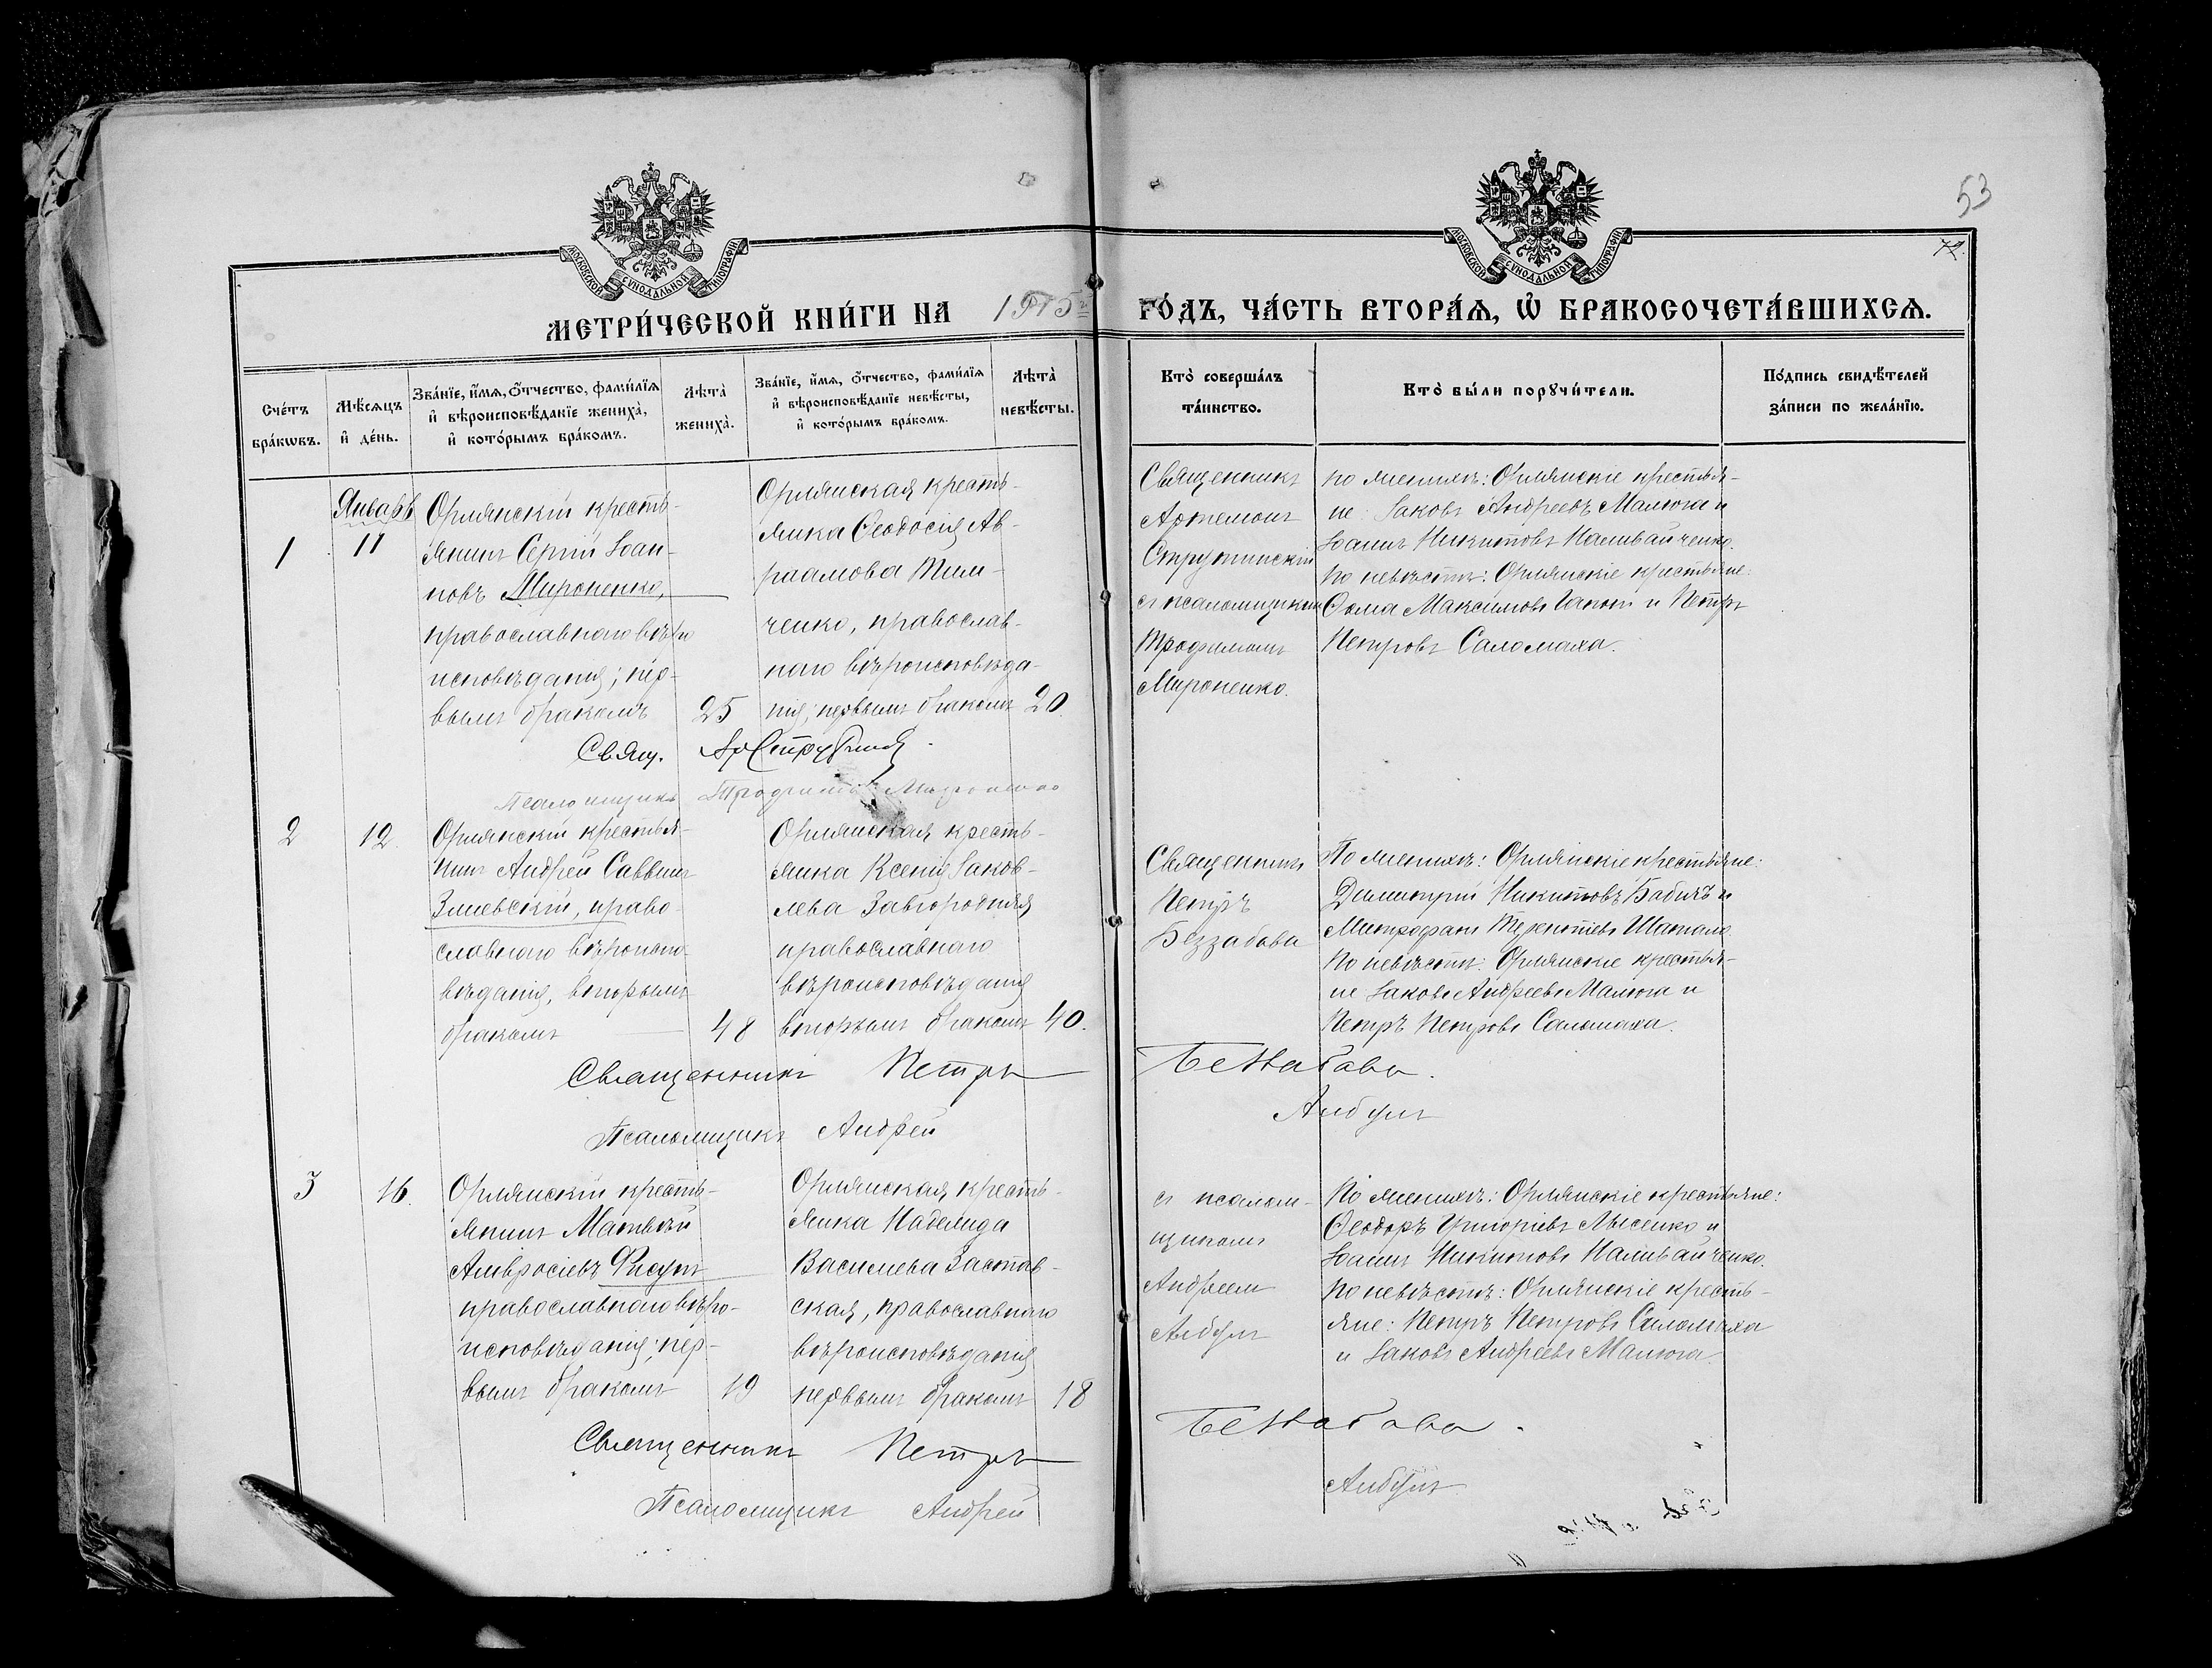 53
72.
МОСКОВСКОЙ СѴНОДАЛЬНОЙ ТИПОГРАФІИ
МОСКОВСКОЙ СѴНОДАЛЬНОЙ ТИПОГРАФІИ
МЕТРИ́ЧЕСКОЙ КНИ́ГИ НА 1915 г. ГО́ДЪ, ЧА́СТЬ ВТОРА́Я, Ѡ҆ БРАКОСОЧЕТА́ВШИХСЯ.
Сче́тъ бра́кѡвъ.
Мѣ́сяцъ и҆ де́нь.
Зва́нїе, и҆́мя, ѻ҆́тчество, фами́лїя и҆ вѣроисповѣ́данїе жениха̀, и҆ кото́рымъ бра́комъ.
Лѣ́та жениха̀.
Зва́нїе, и҆́мя, ѻ҆́тчество, фами́лїя и҆ вѣроисповѣ́данїе невѣ́сты, и҆ кото́рымъ бра́комъ.
Лѣ́та невѣ́сты.
Кто̀ соверша́лъ та́инство.
Кто̀ бы́ли порꙋчи́тели.
По́дпись свидѣ́телей за́писи по жела́нїю.
1
Январь
11
Орлянскій кресть-
янинъ Сергій Іоан-
новъ Мироненко,
православнаго вѣро
исповѣданія; пер-
вымъ бракомъ
25
Орлянская кресть-
янка Ѳеодосія Ав-
раамова Тим-
ченко, православ-
наго вѣроисповѣда-
нія; первымъ бракомъ
20.
Священникъ
Артемонъ
Струтинскій
съ псаломщикомъ
Трофимомъ
Мироненко.
по женихѣ: Орлянскіе крестья-
не: Іаковъ Андреевъ Малюга и
Іоаннъ Никитовъ Наливайченко.
по невѣстѣ: Орлянскіе крестьяне:
Ѳома Максимовъ и Петръ
Петровъ Саломаха.
Свящ.
Псаломщикъ Трофимъ Мироненко
2
12.
Орлянскій крестья-
нинъ Андрей Саввинъ
Змиевскій, право-
славнаго вѣроиспо-
вѣданія, вторымъ
бракомъ
48
Орлянская кресть-
янка Ксенія Іаков-
лева Завгородняя
православнаго
вѣроисповѣданія
вторымъ бракомъ
40.
Священникъ
Петръ
Беззабава
По женихѣ: Орлянскіе крестьяне:
Димитрій Никитовъ Бабичъ и
Митрофанъ Терентіевъ Шаповал
По невѣстѣ: Орлянскіе крестья-
не Іаковъ Андреевъ Малюга и
Петръ Петровъ Саломаха.
Священникъ Петръ Беззабава.
Псаломщикъ Андрей Андущ
3
16.
Орлянскій кресть-
янинъ Матвѣй
Амвросіевъ Фисунъ
православнаго вѣро-
исповѣданія; пер-
вымъ бракомъ
19
Орлянская кресть-
янка Надежда
Васильева Застав-
ская, православнаго
вѣроисповѣданія
первымъ бракомъ
18
съ псалом-
щикомъ
Андреемъ
По женихѣ: Орлянскіе крестьяне:
Ѳеодоръ Григоріевъ Лысенко и
Іоаннъ Никитовъ Наливайченко.
По невѣстѣ: Орлянскіе кресть-
яне: Петръ Петровъ Саломаха
и Іаковъ Андреевъ Малюга.
Священникъ Петръ Беззабава.
Псаломщикъ Андрей